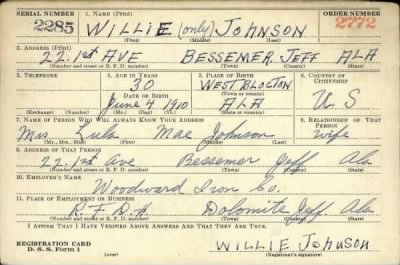 SERIAL NUMBER 1. NAME (Print) ORDER NUMBER
2285 WILLIE (only) JOHNSON 2772
(First) (Middle) (Last)
2. ADDRESS (Print)
22. 1st AVE BESSEMER. JEFF ALA
(Number and street or R. F. D. number) (Town) (County) (State)
3. TELEPHONE 4. AGE IN YEARS 5. PLACE OF BIRTH 6. COUNTRY OF CITIZENSHIP
30 WEST BLOCTON
DATE OF BIRTH (Town or county)
June 4 1910 ALA U. S
(Exchange) (Number) (Mo.) (Day) (Yr.) (State or country)
7. NAME OF PERSON WHO WILL ALWAYS KNOW YOUR ADDRESS 8. RELATIONSHIP OF THAT PERSON
Mrs Lula Mae Johnson wife
(Mr., Mrs., Miss) (First) (Middle) (Last)
9. ADDRESS OF THAT PERSON
22, 1st Ave Bessemer Jeff Ala
(Number and street or R. F. D. number) (Town) (County) (State)
10. EMPLOYER'S NAME
Woodward Iron Co.
11. PLACE OF EMPLOYMENT OR BUSINESS
R. F. D. # Dolomite Jeff. Ala
(Number and street or R. F. D. number) (Town) (County) (State)
I AFFIRM THAT I HAVE VERIFIED ABOVE ANSWERS AND THAT THEY ARE TRUE.
REGISTRATION CARD
D. S. S. Form 1 (over) WILLIE JOHNSON
(Registrant's signature)